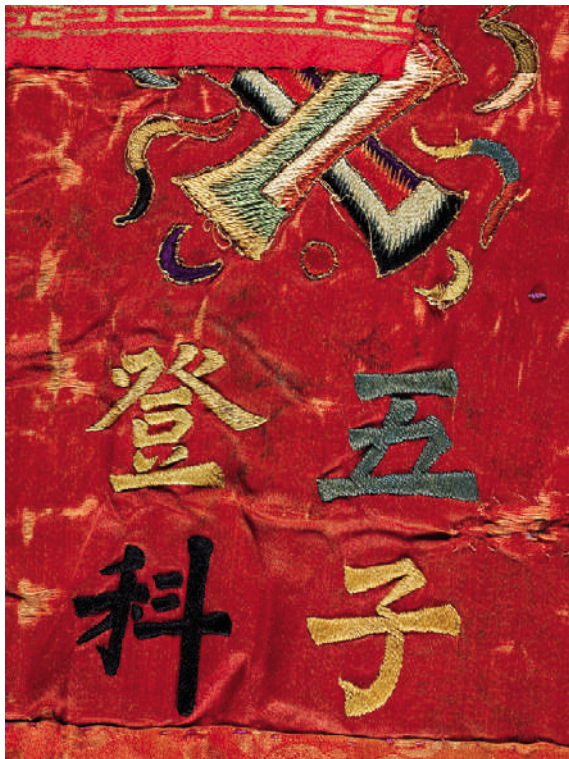 五子
登科